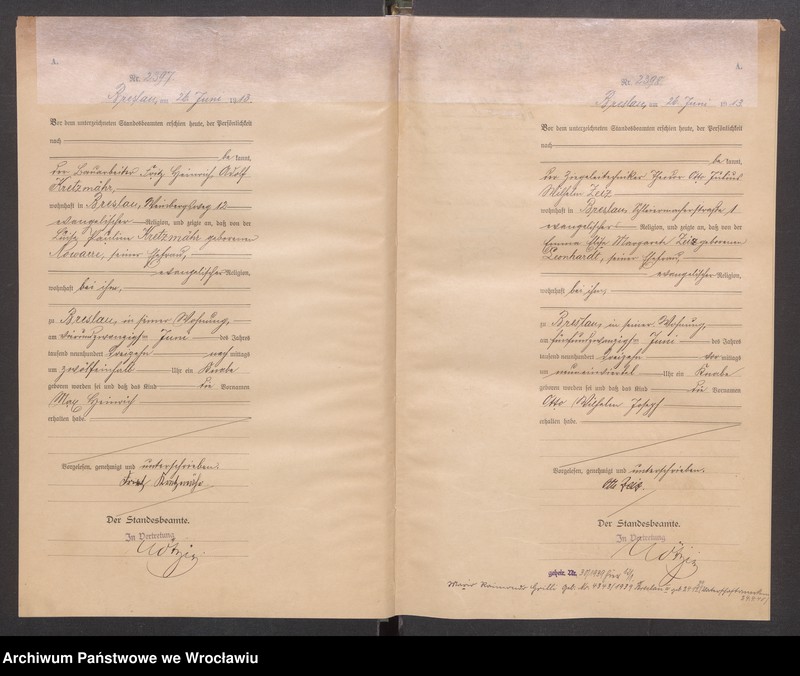 A.
Nr. 2397.
Breslau, am 26. Juni 1913.
Vor dem unterzeichneten Standesbeamten erschien heute, der Persönlichkeit
nach
bekannt,
der Bauarbeiter Fritz Heinrich Adolf
Kretzmähr,
wohnhaft in Breslau, Weinbergsweg 12
evangelischer Religion, und zeigte an, daß von der
Pauline Kretzmähr geborenen
seiner Ehefrau,
evangelischer Religion,
wohnhaft bei ihm,
zu Breslau, in seiner Wohnung,
am Juni des Jahres
tausend neunhundert dreizehn nachmittags
um zwölfeinhalb Uhr ein Knabe
geboren worden sei und daß das Kind die Vornamen
Max Heinrich
erhalten habe.
Vorgelesen, genehmigt und unterschrieben.
Fritz Kretzmähr
Der Standesbeamte.
In Vertretung.
A.
Nr. 2398.
Breslau, am 26. Juni 1913.
Vor dem unterzeichneten Standesbeamten erschien heute, der Persönlichkeit
nach
bekannt,
der Otto Julius
Wilhelm Zeiz
wohnhaft in Breslau, Schleiermacherstraße 1
evangelischer Religion, und zeigte an, daß von der
Emma Margareth Zeiz geborenen
Leonhardt, seiner Ehefrau,
evangelischer Religion,
wohnhaft bei ihm,
zu Breslau, in seiner Wohnung,
am fünfundzwanzigsten Juni des Jahres
tausend neunhundert dreizehn vormittags
um neuneinviertel Uhr ein Knabe
geboren worden sei und daß das Kind die Vornamen
Otto Wilhelm Joseph
erhalten habe.
Vorgelesen, genehmigt und unterschrieben.
Otto Zeiz.
Der Standesbeamte.
In Vertretung.
Geb. Nr. 4343/1939 Breslau
Archiwum Państwowe we Wrocławiu